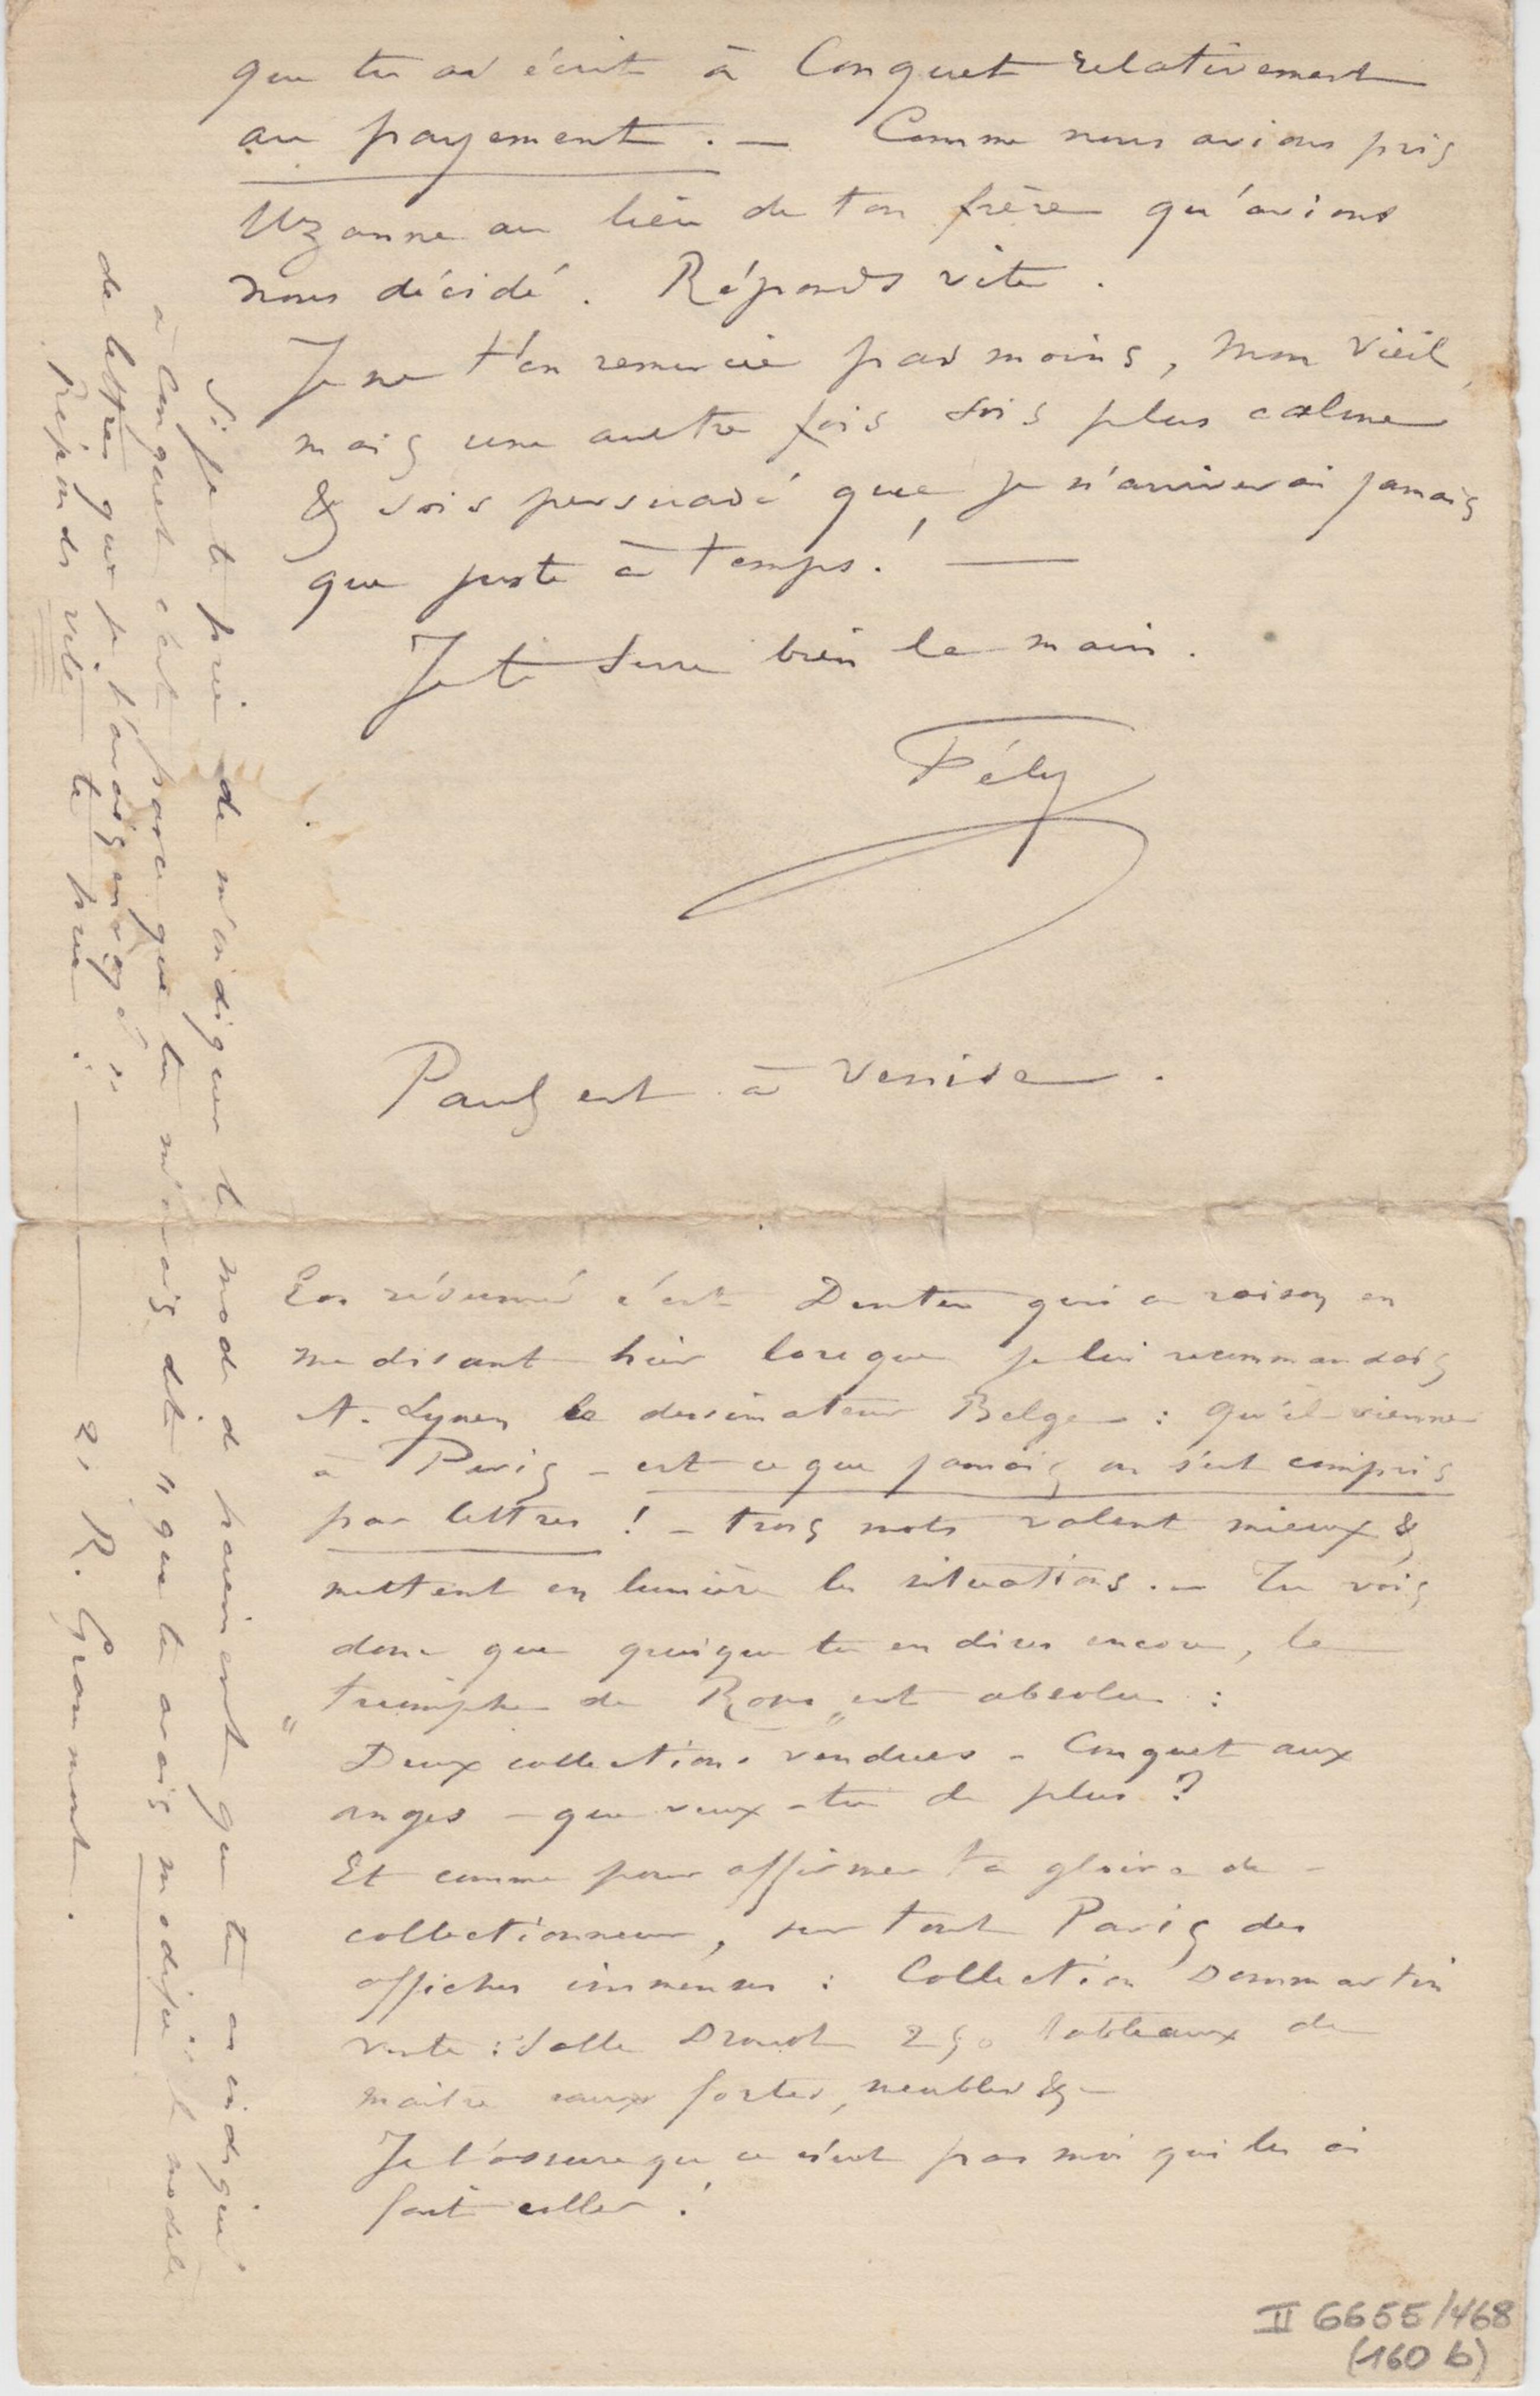 que tu as écrit à Conquet relativement
au payement. — Comme nous avions pris
Uzanne au lieu de ton frère qu'avions
nous décidé. Réponds vite.
Je ne t'en remercie pas moins, mon vieil,
mais une autre fois sois plus calme
& sois persuadé que je n'arriverai jamais
que juste à temps! —
Je te serre bien la main.
Fély
Paul est à Venise.
En résumé c'est Dentu qui a raison en
me disant hier lorsque je lui recommandais
A. Lynen le dessinateur Belge : qu'il vienne
à Paris - est ce que jamais on s'est compris
par lettres ! - trois mots valent mieux &
mettent en lumière les situations. — Tu vois
donc que quoique tu en dises encore, le
"triomphe de Rops" est absolu :
Deux collections vendues - Conquet aux
anges - que veux-tu de plus ?
Et comme pour affirmer ta gloire de -
collectionneur, sur tout Paris des
affiches immenses : Collection Dommartin
vente : Salle Drouot 250 tableaux de
maitre eaux fortes, meubles & —
Je t'assure que ce n'est pas moi qui les ai
fait coller !
Si je te prie de m'indiquer le mode de paiement que tu as indiqué
à Conquet c'est parce que tu m'avais dit "que tu avais modifié le modèle
de lettres que je t'avais envoyé"
Réponds vite te prie. — 2, R. Grammont.
II 6655/468
(160 b)